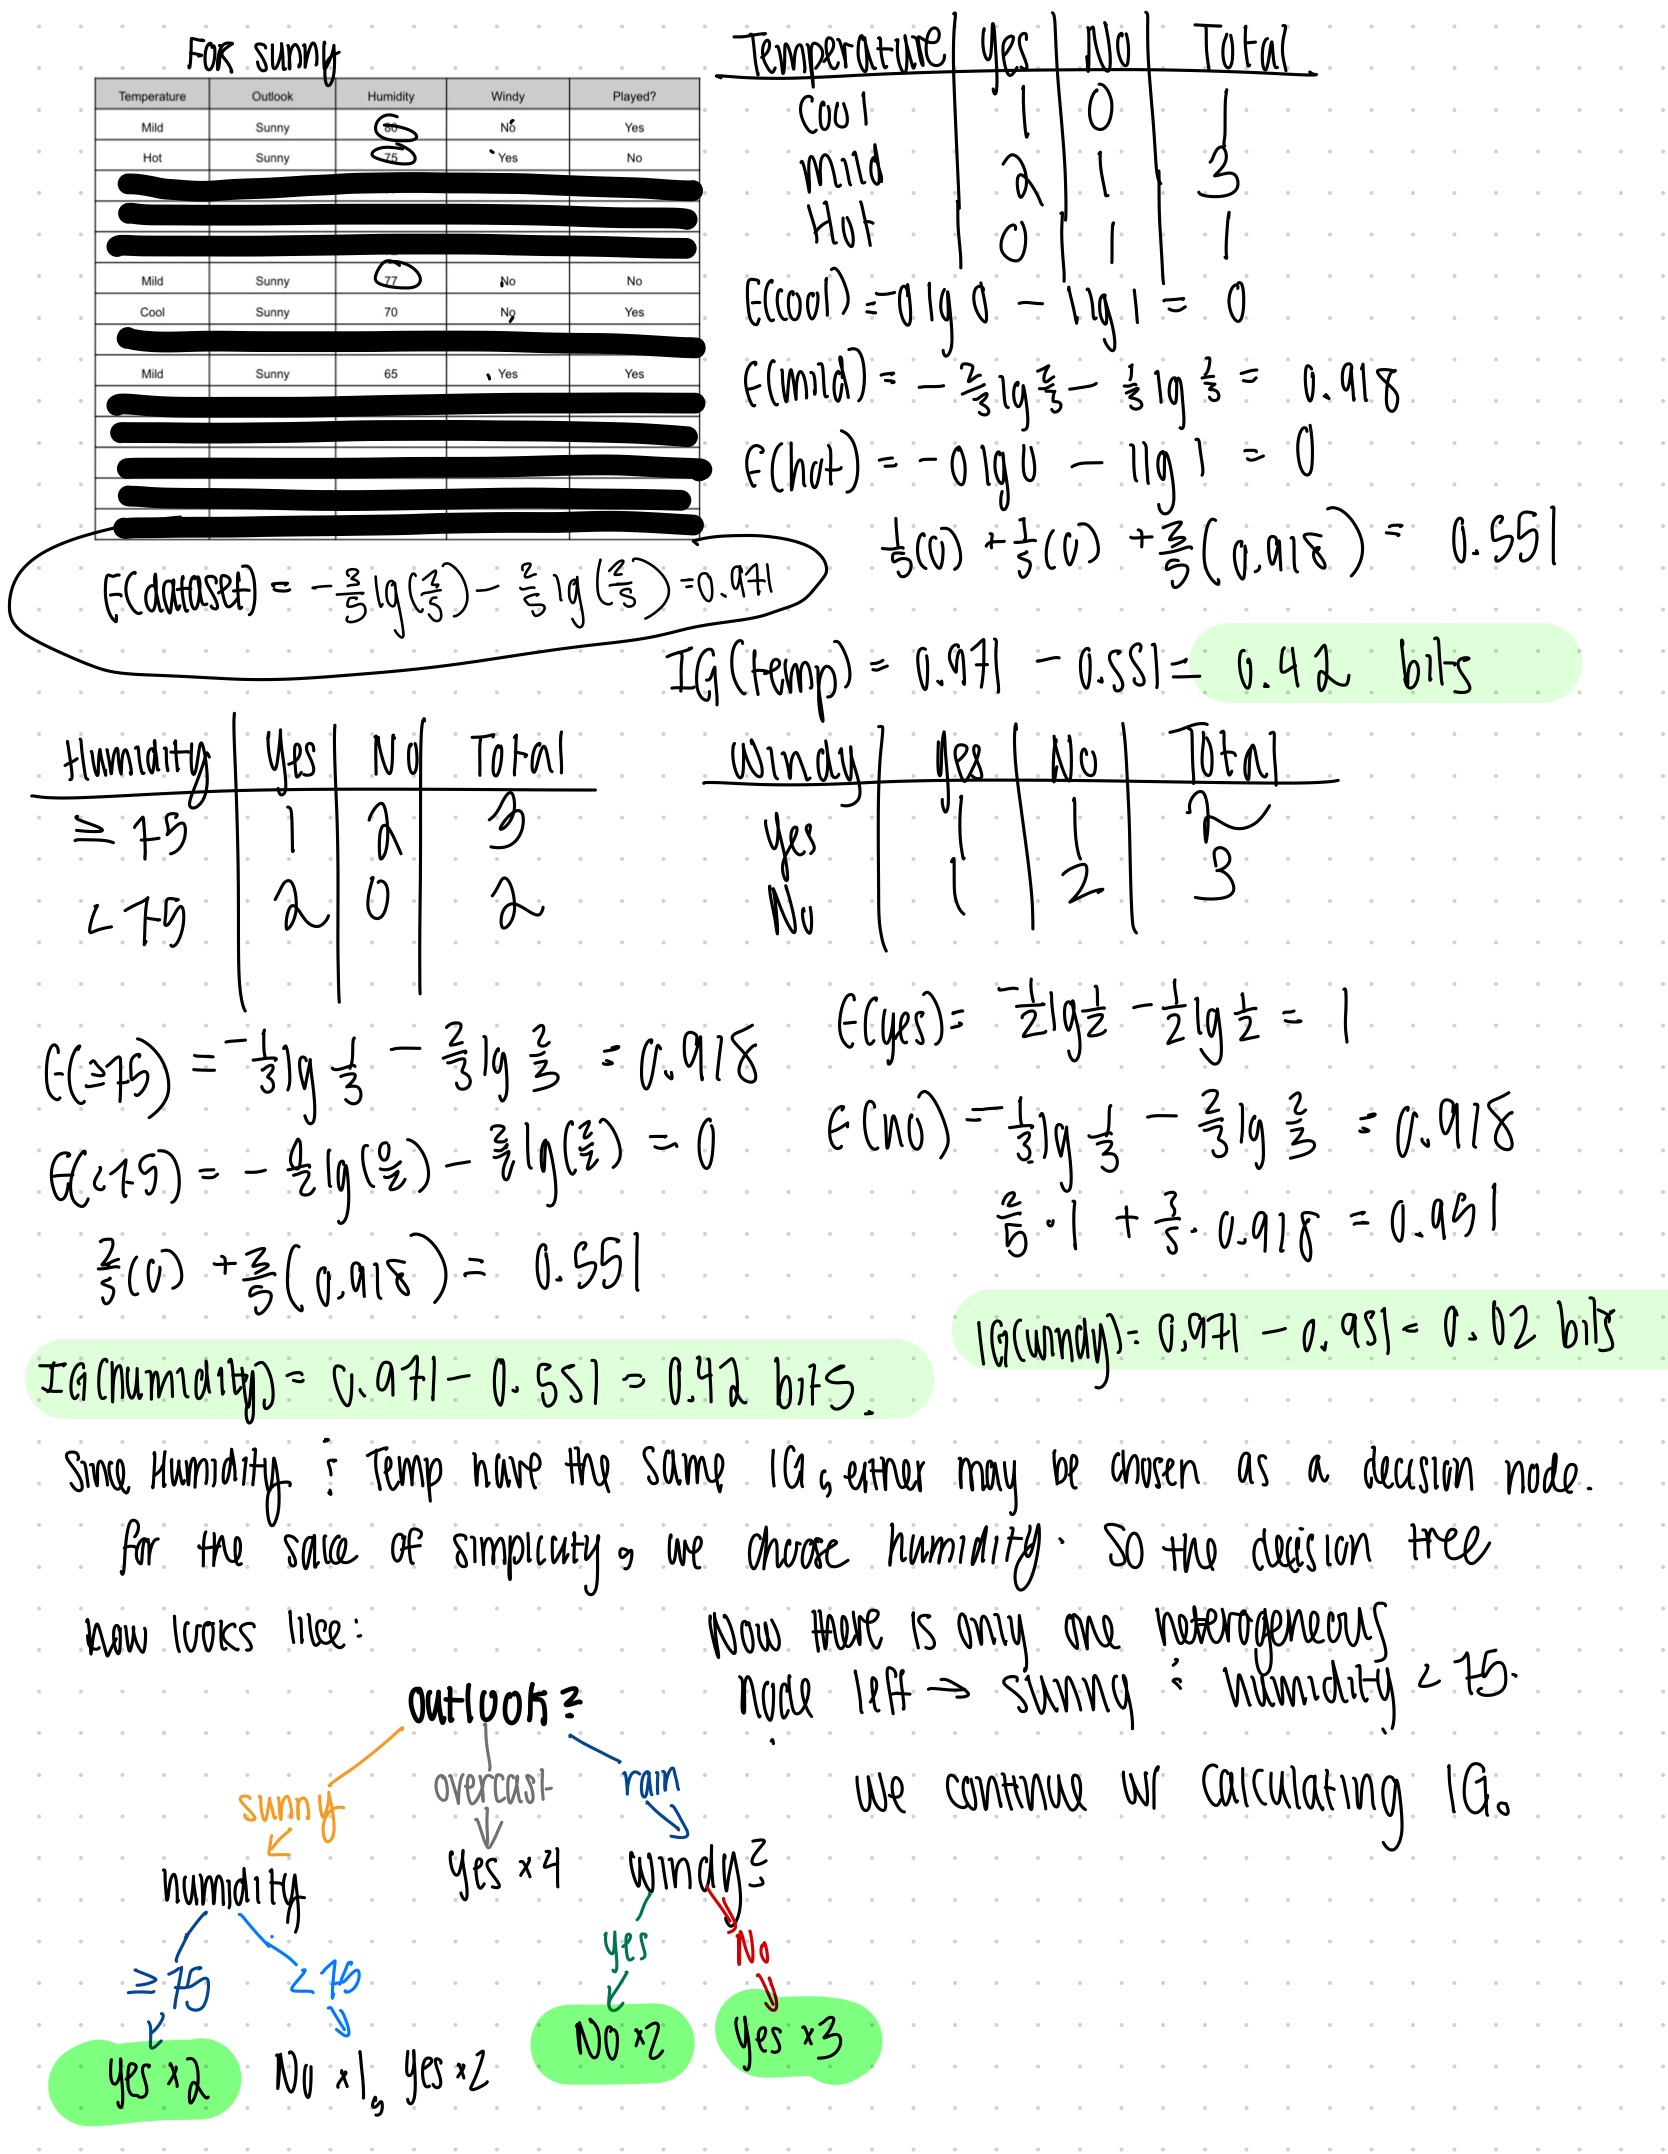 For sunny
Temperature Outlook Humidity Windy Played?
Mild Sunny 80 No Yes
Hot Sunny 75 Yes No
Mild Sunny 77 No No
Cool Sunny 70 No Yes
Mild Sunny 65 Yes Yes
E(dataset) = -3/5 lg(3/5) - 2/5 lg(2/5) = 0.971
Temperature Yes No Total
Cool 1 0 1
Mild 2 1 3
Hot 0 1 1
E(cool) = -0 lg 0 - 1 lg 1 = 0
E(mild) = -2/3 lg 2/3 - 1/3 lg 1/3 = 0.918
E(hot) = -0 lg 0 - 1 lg 1 = 0
1/5(0) + 1/5(0) + 3/5(0.918) = 0.551
IG(temp) = 0.971 - 0.551 = 0.42 bits
Humidity Yes No Total
≥ 75 1 2 3
< 75 2 0 2
E(≥75) = -1/3 lg 1/3 - 2/3 lg 2/3 = 0.918
E(<75) = -0/2 lg(0/2) - 2/2 lg(2/2) = 0
2/5(0) + 3/5(0.918) = 0.551
IG(humidity) = 0.971 - 0.551 = 0.42 bits.
Windy Yes No Total
Yes 1 1 2
No 1 2 3
E(yes) = -1/2 lg 1/2 - 1/2 lg 1/2 = 1
E(no) = -1/3 lg 1/3 - 2/3 lg 2/3 = 0.918
2/5 · 1 + 3/5 · 0.918 = 0.951
IG(windy) = 0.971 - 0.951 = 0.02 bits
Since Humidity & Temp have the same IG, either may be chosen as a decision node.
For the sake of simplicity, we choose humidity. So the decision tree
now looks like:
Now there is only one heterogeneous
node left → sunny & humidity < 75.
We continue w/ calculating IG.
outlook?
sunny overcast rain
humidity yes ×4 windy?
≥ 75 < 75 yes No
yes ×2 No ×1, yes ×2 No ×2 yes ×3